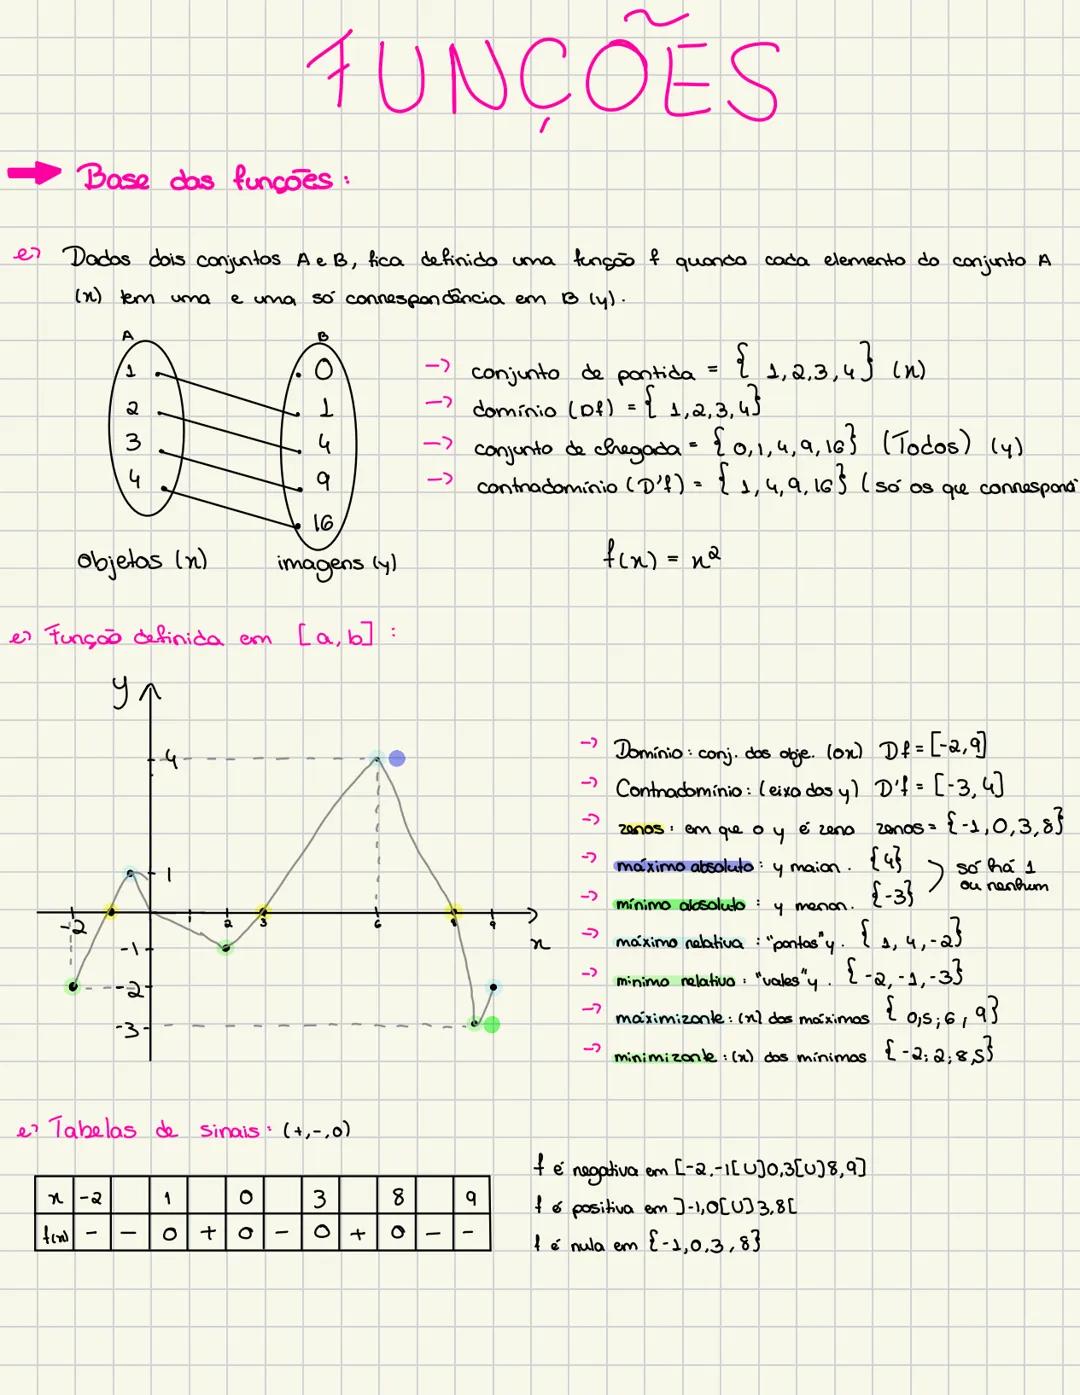 FUNÇÕES
Base das funções:
Dados dois conjuntos A e B, fica definido uma função f quando cada elemento do conjunto A
(x) tem uma e uma só correspondência em B (y).
A B
1 0
2 1
3 4
4 9
16
objetos (x) imagens (y)
-> conjunto de partida = { 1,2,3,4} (x)
-> domínio (Df) = { 1,2,3,4}
-> conjunto de chegada = { 0,1,4,9,16} (Todos) (y)
-> contradomínio (D'f) = { 1,4,9,16} (só os que
f(x) = x²
Função definida em [a,b] :
y
4
1
-2 2 3 6 8 9
x
-1
-2
-3
-> Domínio: conj. dos obje. (ox) Df = [-2,9]
-> Contradomínio: (eixo dos y) D'f = [-3,4]
-> zeros: em que o y é zero zeros = {-1,0,3,8}
-> máximo absoluto: y maior. {4}
-> mínimo absoluto : y menor. {-3}
só há 1
ou nenhum
-> máximo relativo : "pontas" y. { 1, 4, -2}
-> minimo relativo : "vales" y. {-2, -1, -3}
-> maximizante: (x) dos máximos { 0,5; 6, 9}
-> minimizante: (x) dos mínimos {-2; 2; 8,5}
Tabelas de sinais: (+,-,0)
x -2 1 0 3 8 9
f(x) - - 0 + 0 - 0 + 0 - -
f é negativa em [-2,-1[U]0,3[U]8,9]
f é positiva em ]-1,0[U]3,8[
f é nula em {-1,0,3,8}